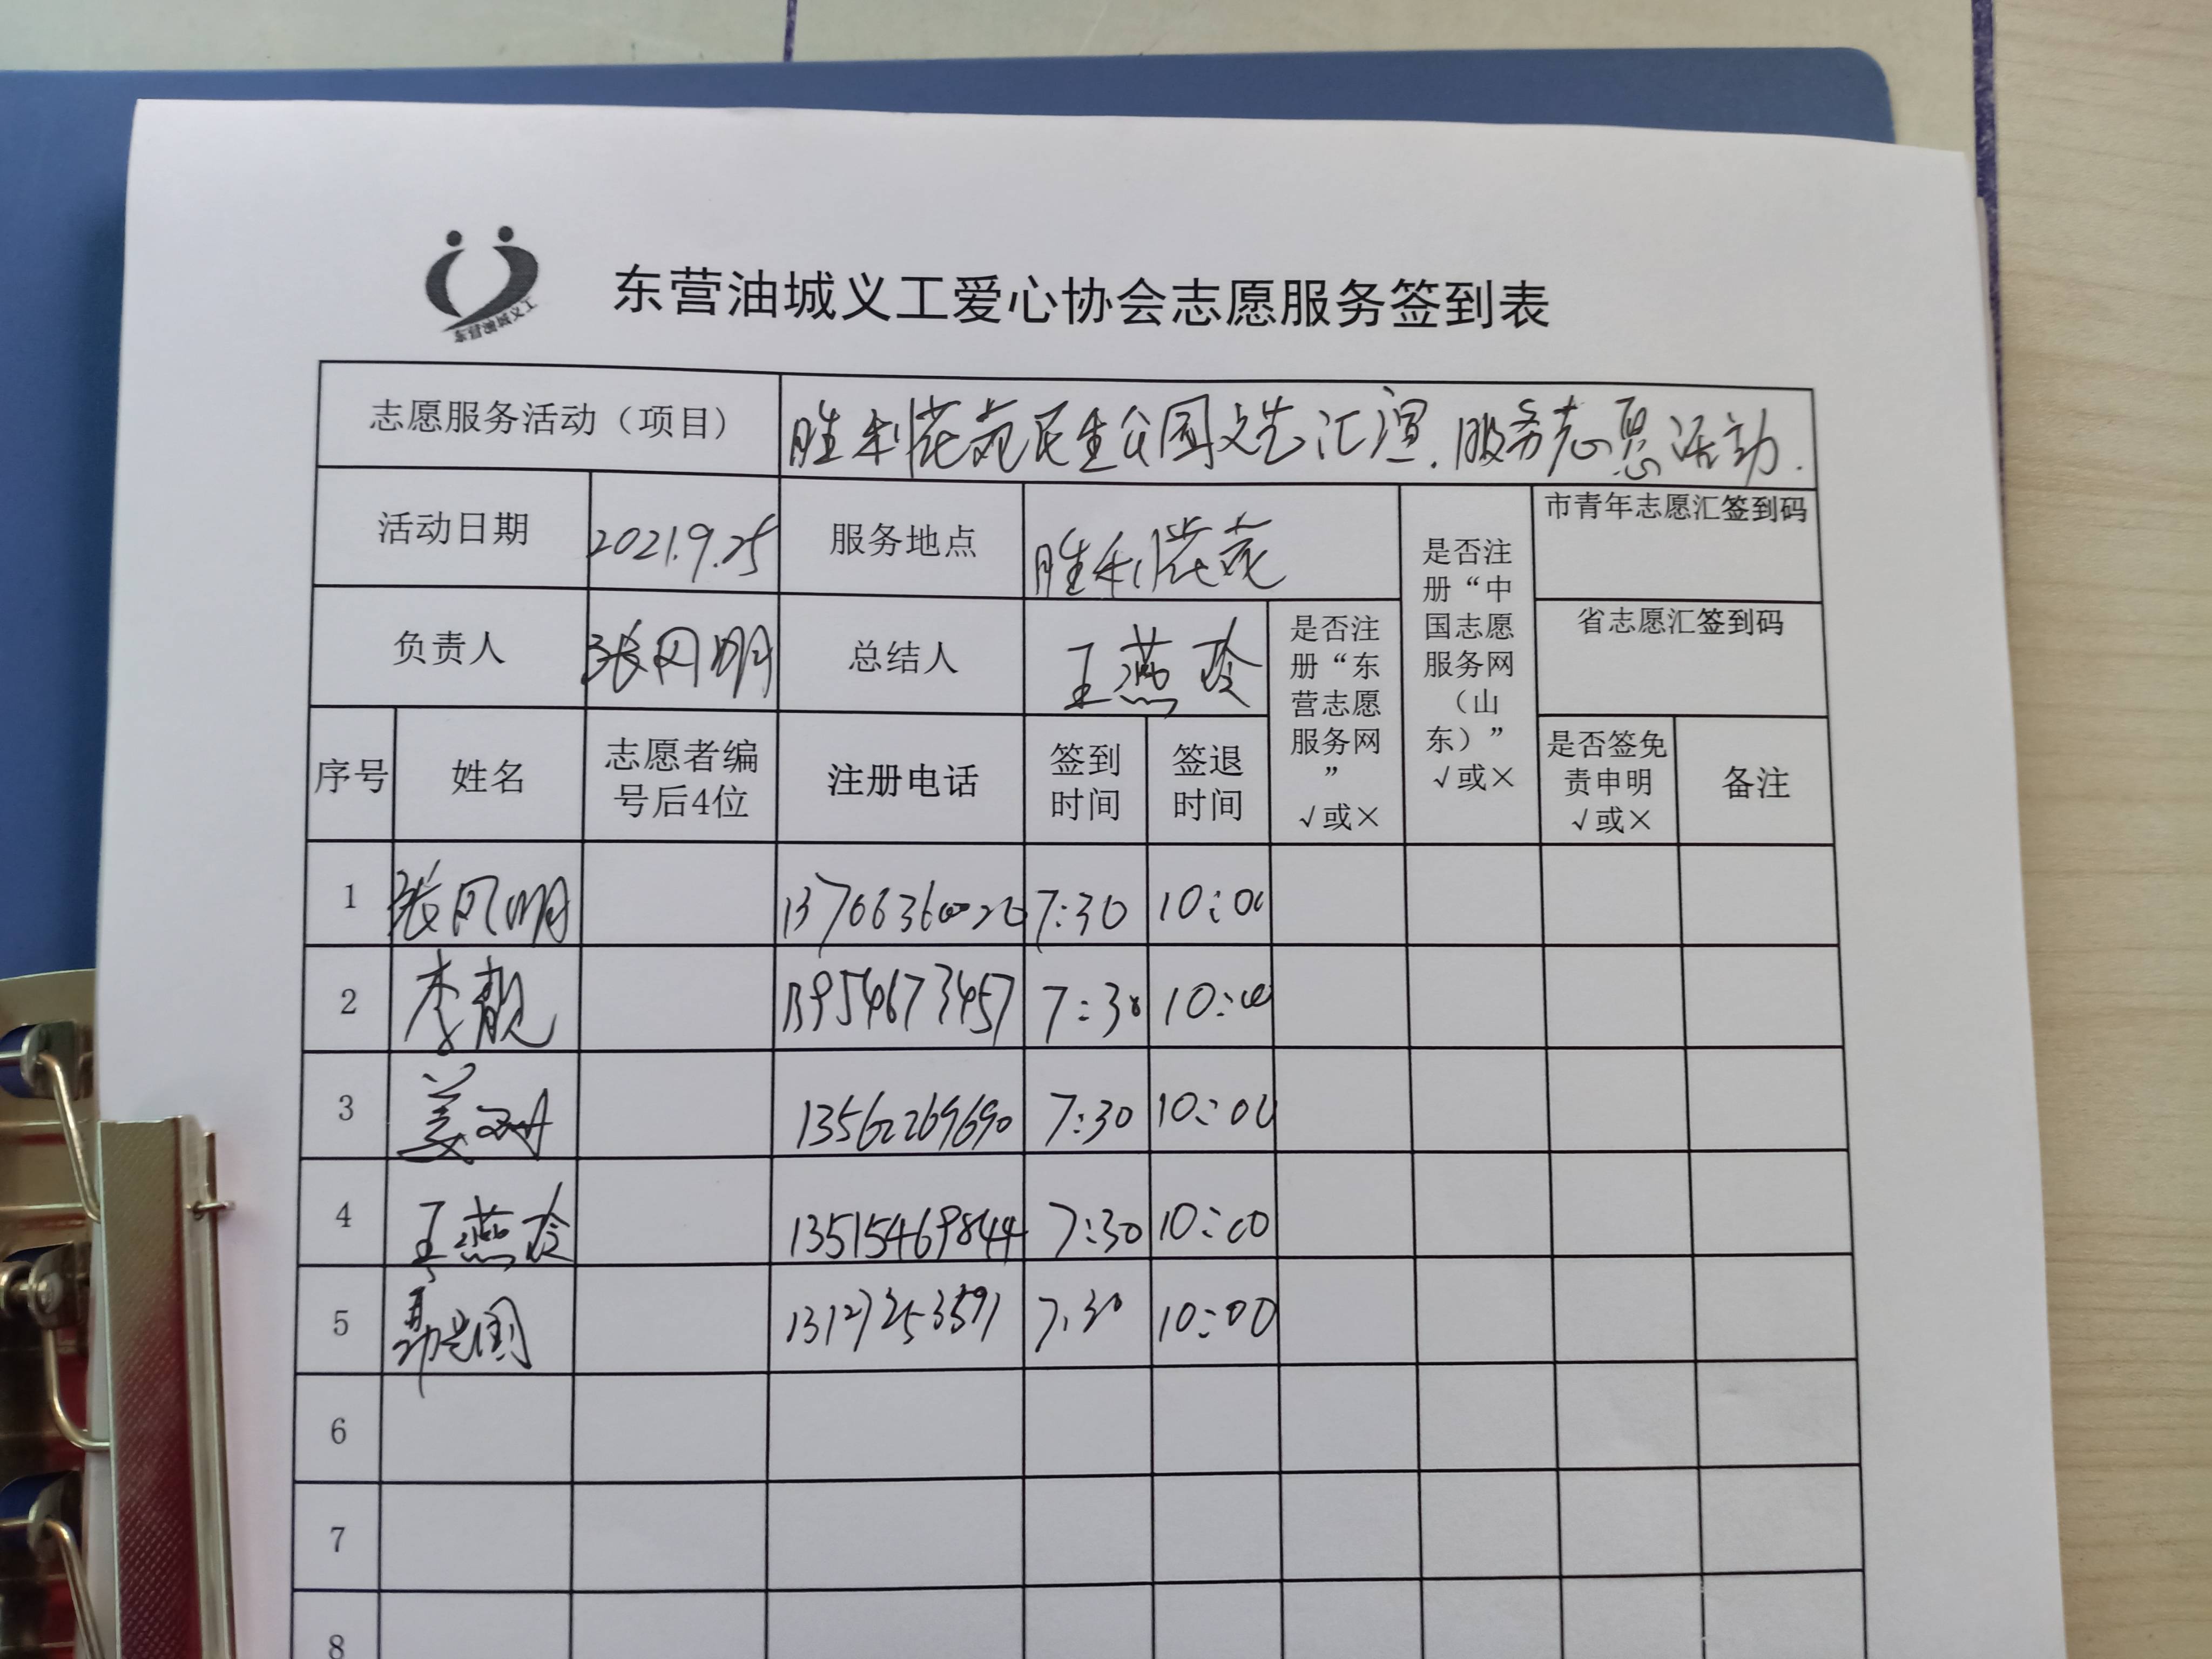 东营油城义工
东营油城义工爱心协会志愿服务签到表
志愿服务活动（项目） 胜利花苑民生公园文艺汇演.服务志愿活动.
活动日期 2021.9.25 服务地点 胜利花苑
是否注册“中国志愿服务网（山东）” √或×
市青年志愿汇签到码
省志愿汇签到码
负责人 张风明 总结人 王燕玲
是否注册“东营志愿服务网” √或×
序号 姓名 志愿者编号后4位 注册电话 签到时间 签退时间 是否签免责申明 √或× 备注
1 张风明 7:30 10:00
2 李靓 13954673457 7:30 10:00
3 姜 13562269690 7:30 10:00
4 王燕玲 13515469844 7:30 10:00
5 国 7:30 10:00
6
7
8